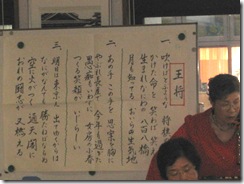 王将
一、吹けばとぶような 将棋の駒に
かけた命を 笑わば笑え
生まれなにわの 八百八橋
月も知ってる おいらの意気地
二、あの手この手の 思案を胸に
やぶれ長屋で 今年も暮れた
愚痴も言わずに 女房の小春
つくる笑顔が いじらしい
三、明日は東京に 出て行くからは
なにがなんでも 勝たねばならぬ
空に灯がつく 通天閣に
おれの闘志が 又燃える